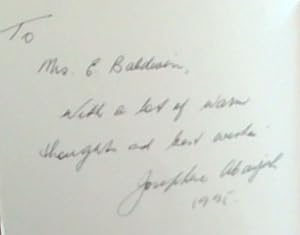 To
Mrs. E. Baldwin,
With a lot of warm
thoughts and best wishes
Josephine Abaijah
1995.